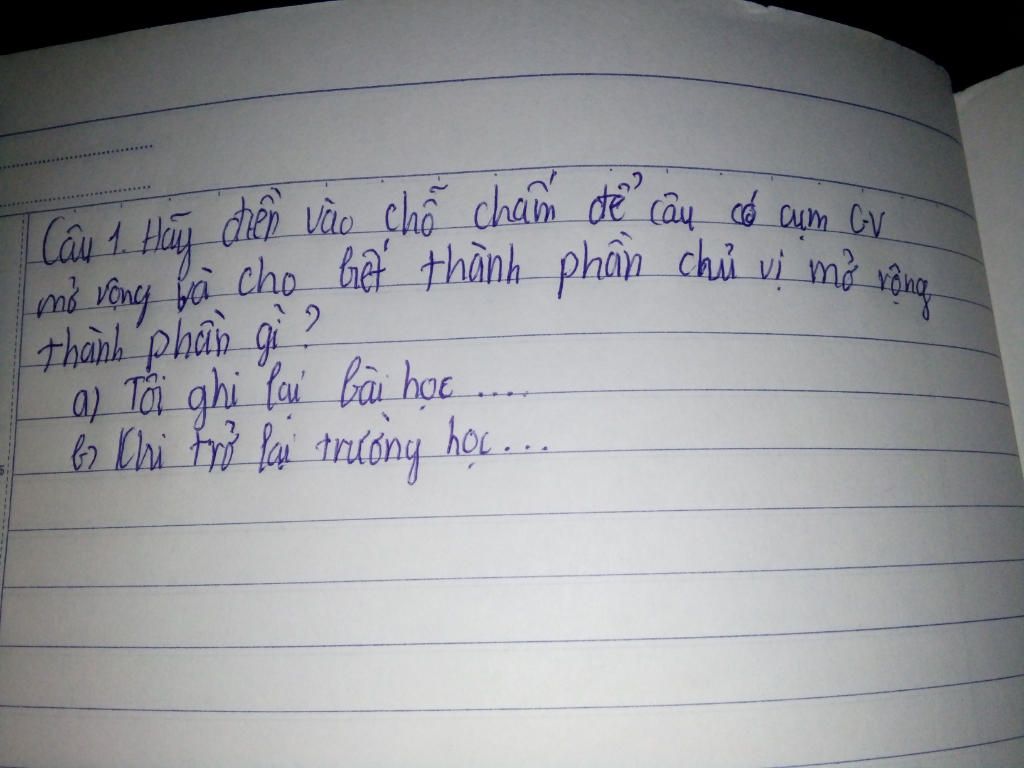 Câu 1. Hãy điền vào chỗ chấm để câu có cụm C-V
mở rộng và cho biết thành phần chủ vị mở rộng
thành phần gì?
a) Tôi ghi lại bài học ....
b) Khi trở lại trường học...